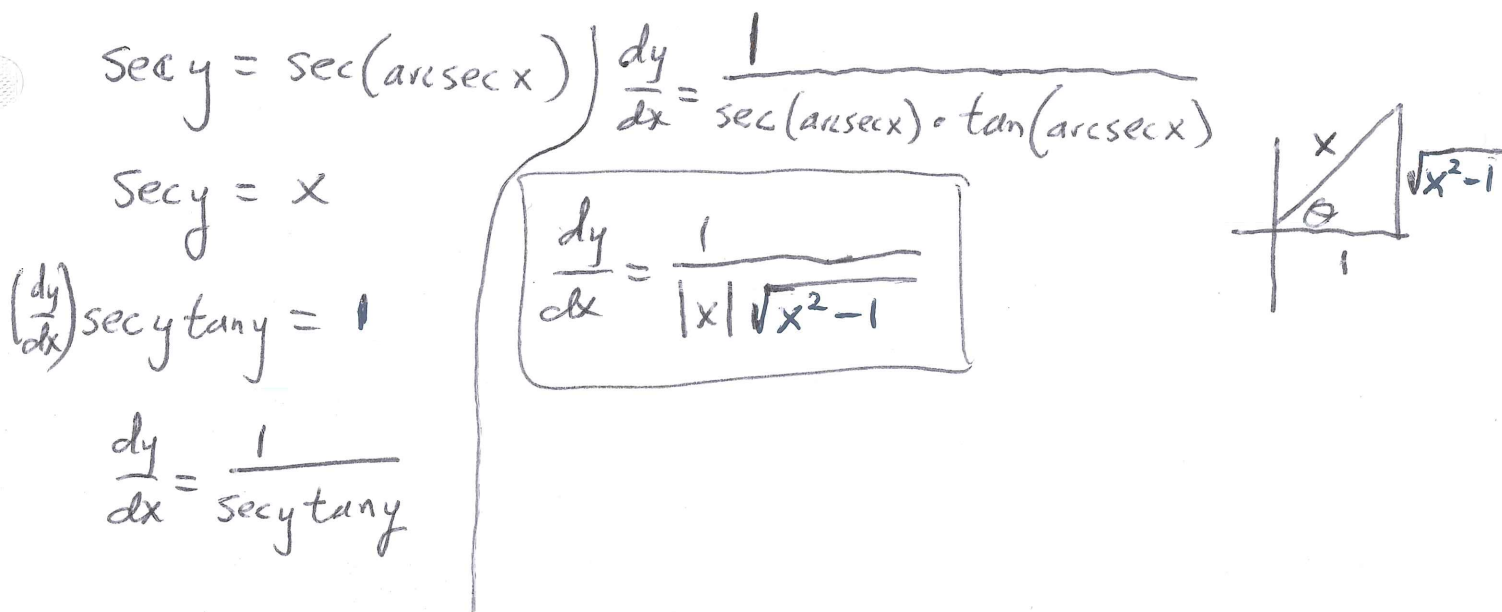 sec y = sec(arcsec x)
sec y = x
(dy/dx) sec y tan y = 1
dy/dx = 1/(sec y tan y)
dy/dx = 1/(sec(arcsec x) • tan(arcsec x))
dy/dx = 1/(|x|√(x²-1))
x
√(x²-1)
θ
1